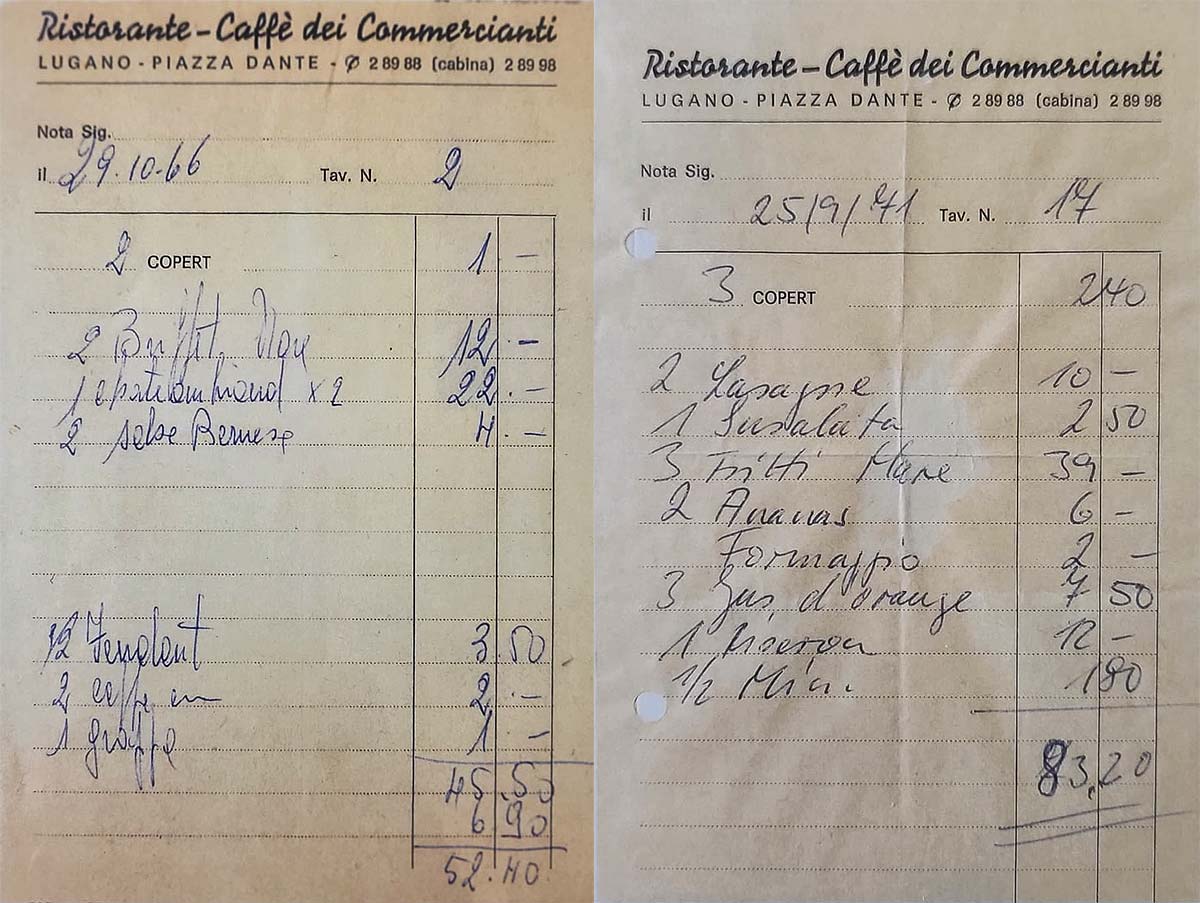 Ristorante – Caffè dei Commercianti
LUGANO - PIAZZA DANTE - ✆ 2 89 88 (cabina) 2 89 98
Nota Sig.
il 29.10.66 Tav. N. 2
2 COPERT 1.-
2 Buffet 12.-
1 x 2 22.-
2 4.-
1/2 Fendant 3.50
2 caffe 2.-
1 grappa 1.-
45.50
6 90
52.40
Ristorante – Caffè dei Commercianti
LUGANO - PIAZZA DANTE - ✆ 2 89 88 (cabina) 2 89 98
Nota Sig.
il 25/9/71 Tav. N. 17
3 COPERT 2 40
2 Lasagne 10 -
1 Insalata 2 50
3 Fritti Mare 39 -
2 Ananas 6 -
Formaggio 2 -
3 Jus d'orange 7 50
1 12 -
1/2 Min. 1 80
83,20